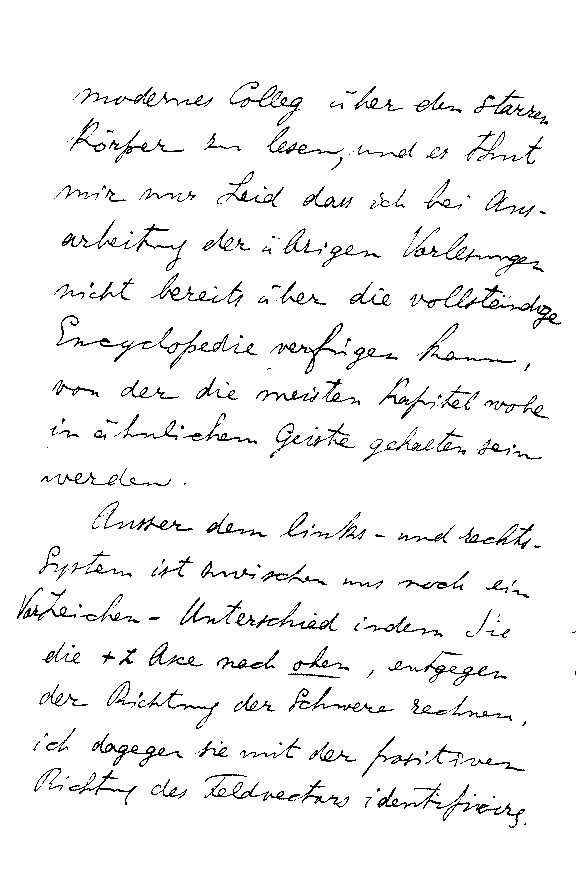 modernes Colleg über den starren
Körper zu lesen, und es thut
mir nur Leid dass ich bei Aus-
arbeitung der übrigen Vorlesungen
nicht bereits über die vollständige
Encyclopedie verfügen kann,
von der die meisten Kapitel wohl
in ähnlichem Geiste gehalten sein
werden.
Ausser dem links- und rechts-
System ist zwischen uns noch ein
Vorzeichen-Unterschied indem Sie
die +Z Axe nach oben, entgegen
der Richtung der Schwere rechnen,
ich dagegen sie mit der positiven
Richtung des Feldvectors identificire.